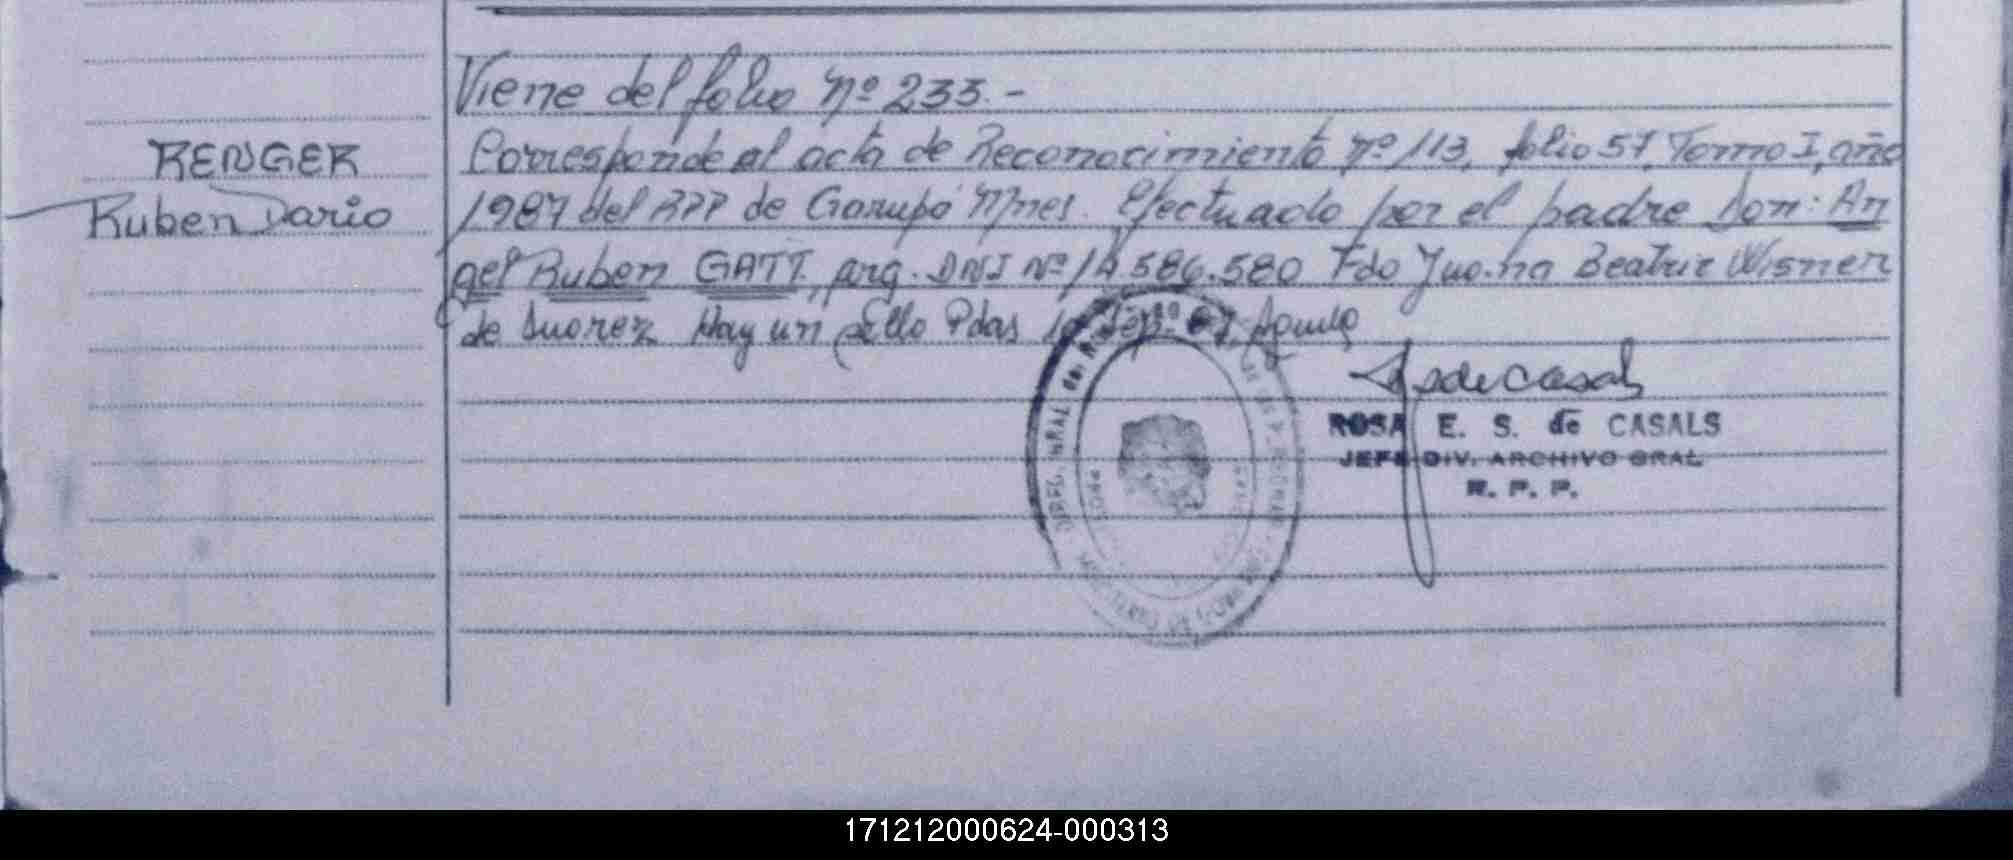 Viene del folio Nº 233.-
RENGER
Ruben Dario
Corresponde al acta de Reconocimiento Nº 113, folio 57, Tomo I, año
1987 del RPP de Garupá Mnes. Efectuado por el padre Don: An
gel Ruben GATT, arg. DNI Nº 14.586.580 Fdo Juana Beatriz Wisner
de Suarez Hay un sello Pdas
ROSA E. S. de CASALS
JEFE DIV. ARCHIVO GRAL
R. P. P.
171212000624-000313